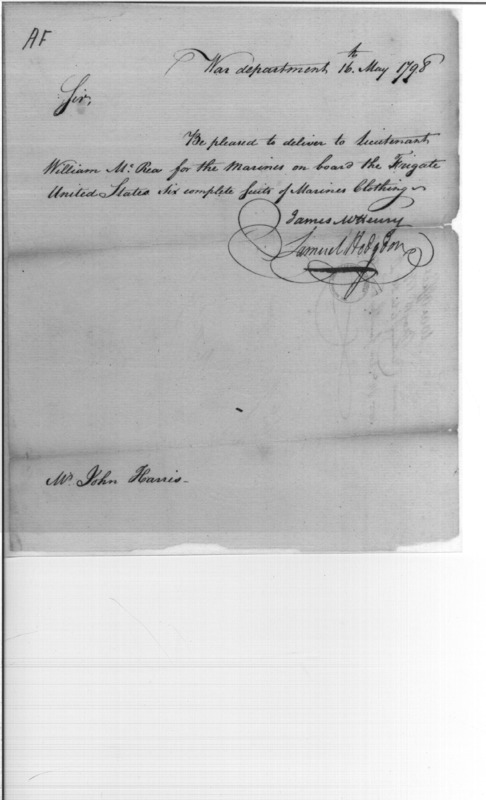 AF
War department 16th May 1798
Sir,
Be pleased to deliver to Lieutenant
William Mc Rea for the Marines on board the Frigate
United States six complete suits of Marines Clothing
James McHenry
Samuel Hodgdon
Mr John Harris